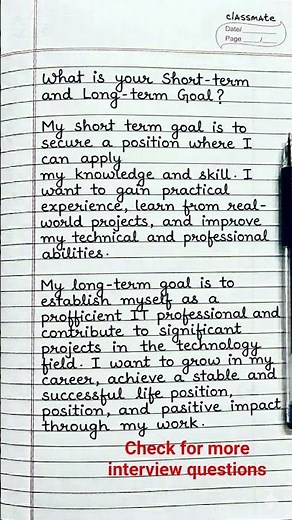 classmate
Date/
Page
What is your Short-term
and Long-term Goal?
My short term goal is to
secure a position where I
can apply
my knowledge and skill. I
want to gain practical
experience, learn from real-
world projects, and improve
my technical and professional
abilities.
My long-term goal is to
establish myself as a
profficient IT professional and
contribute to significant
projects in the technology
field. I want to grow in my
career, achieve a stable and
successful life position,
position, and pasitive impact
through my work.
Check for more
interview questions